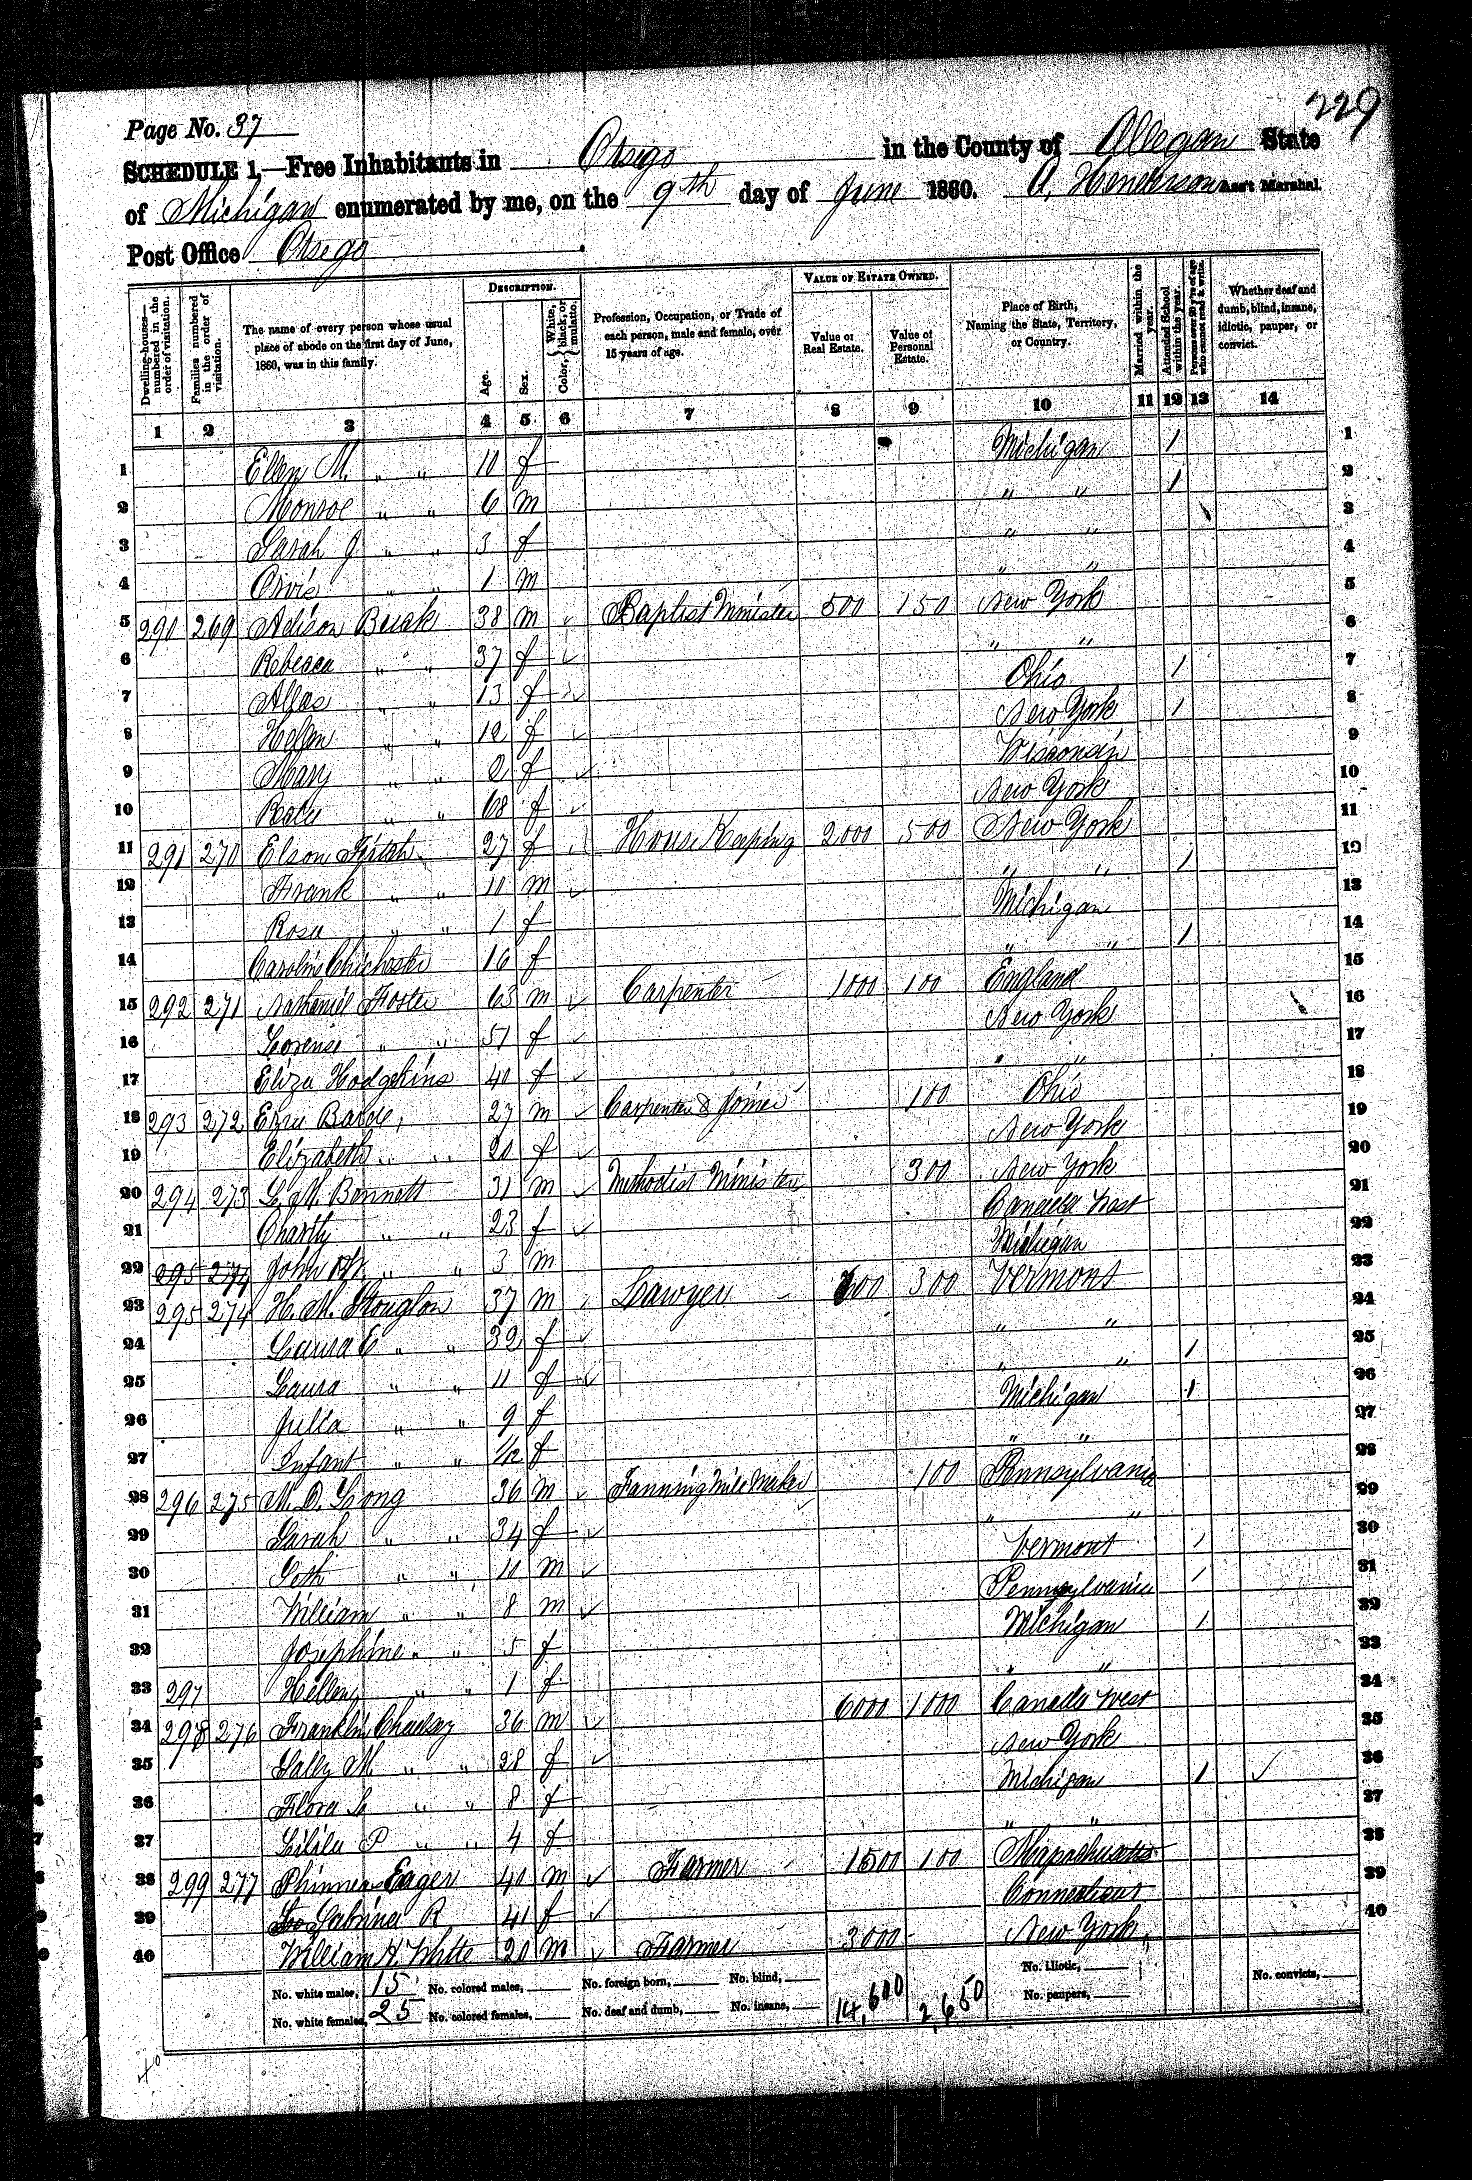 229
Page No. 37
SCHEDULE 1.—Free Inhabitants in Otsego in the County of Allegan State
of Michigan enumerated by me, on the 9th day of June 1860. A. Henderson Ass't Marshal.
Post Office Otsego
Dwelling-houses—numbered in the order of visitation.
Families numbered in the order of visitation.
The name of every person whose usual place of abode on the first day of June, 1860, was in this family.
DESCRIPTION.
Age.
Sex.
Color, { White, black, or mulatto.
Profession, Occupation, or Trade of each person, male and female, over 15 years of age.
VALUE OF ESTATE OWNED.
Value of Real Estate.
Value of Personal Estate.
Place of Birth, Naming the State, Territory, or Country.
Married within the year.
Attended School within the year.
Persons over 20 y'rs of age who cannot read & write.
Whether deaf and dumb, blind, insane, idiotic, pauper, or convict.
1 2 3 4 5 6 7 8 9 10 11 12 13 14
1 Ellen M. " " 10 f Michigan 1 1
2 Monroe " " 6 m " " 1 2
3 Sarah J " " 3 f " " 3
4 Orvis " " 1 m " " 4
5 290 269 Adison 38 m Baptist Minister 500 150 New York 5
6 Rebecca " " 37 f " " 6
7 " " 13 f Ohio 1 7
8 Helen " " 12 f New York 1 8
9 Mary " " 2 f Wisconsin 9
10 " " 68 f New York 10
11 291 270 27 f House Keeping 2000 500 New York 11
12 Frank " " 10 m " " 1 12
13 Rosa " " 1 f Michigan 13
14 Caroline Chichester 16 f " " 1 14
15 292 271 Nathaniel Foster 63 m Carpenter 1000 100 England 15
16 " " 51 f New York 16
17 Eliza Hodgekins 40 f " " 17
18 293 272 27 m Carpenter & Joiner 100 Ohio 18
19 Elizabeth " " 20 f New York 19
20 294 273 L. M. Bennett 31 m Methodist Minister 300 New York 20
21 Charity " " 23 f Canada West 21
22 295 274 John " " 3 m Michigan 22
23 295 274 H. M. 37 m Lawyer 600 300 Vermont 23
24 Laura E " " 32 f " " 24
25 Laura " " 11 f " " 1 25
26 Julia " " 9 f Michigan 1 26
27 Infant " " 1/12 f " " 27
28 296 275 M. D. Long 36 m Fanning Mill Maker 100 Pennsylvania 28
29 Sarah " " 34 f " " 29
30 " " 10 m Vermont 1 30
31 William " " 8 m Pennsylvania 1 31
32 Josephine " " 5 f Michigan 1 32
33 297 Hellen " " 1 f " " 33
34 298 276 Franklin 36 m 6000 1000 Canada West 34
35 Sally M " " 28 f New York 35
36 Flora L " " 8 f Michigan 1 36
37 P " " 4 f " " 37
38 299 277 Phinneas Eager 40 m Farmer 1500 100 Massachusetts 38
39 Sabrina R 41 f Connecticut 39
40 William H. White 20 m Farmer 3000 New York 40
No. white males, 15 No. colored males, No. foreign born, No. blind, No. idiotic, No. convicts,
No. white females, 25 No. colored females, No. deaf and dumb, No. insane, 14,600 2,650 No. paupers,